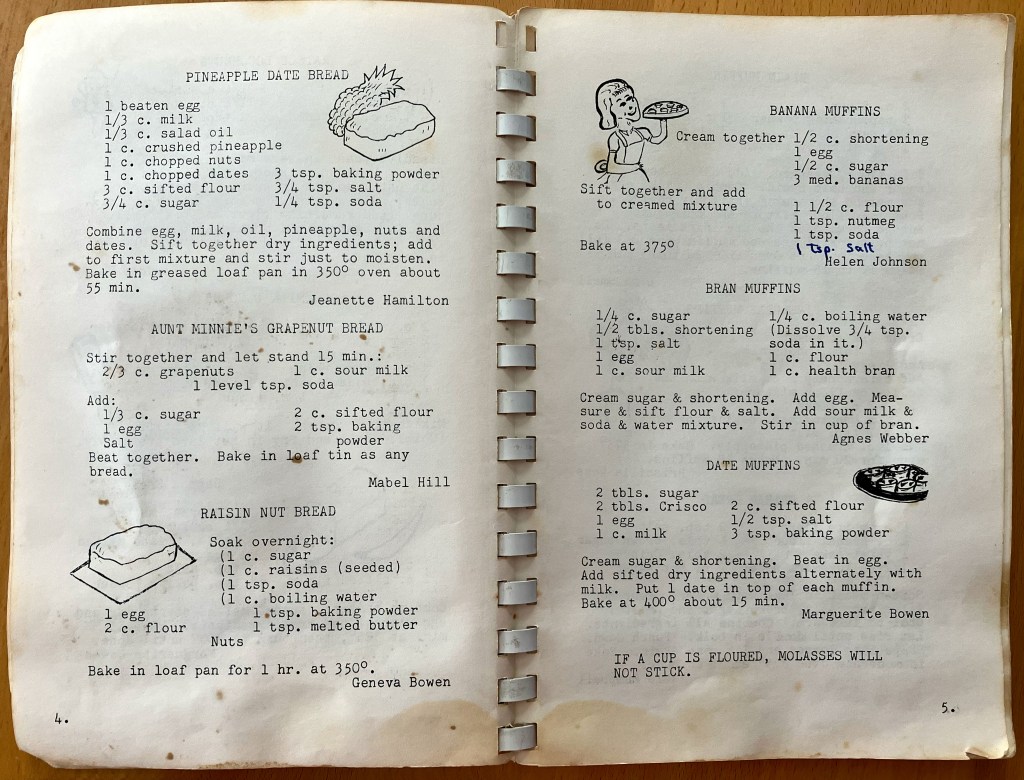 PINEAPPLE DATE BREAD
1 beaten egg
1/3 c. milk
1/3 c. salad oil
1 c. crushed pineapple
1 c. chopped nuts
1 c. chopped dates 3 tsp. baking powder
3 c. sifted flour 3/4 tsp. salt
3/4 c. sugar 1/4 tsp. soda
Combine egg, milk, oil, pineapple, nuts and
dates. Sift together dry ingredients; add
to first mixture and stir just to moisten.
Bake in greased loaf pan in 350° oven about
55 min.
Jeanette Hamilton
AUNT MINNIE'S GRAPENUT BREAD
Stir together and let stand 15 min.:
2/3 c. grapenuts 1 c. sour milk
1 level tsp. soda
Add:
1/3 c. sugar 2 c. sifted flour
1 egg 2 tsp. baking
Salt powder
Beat together. Bake in loaf tin as any
bread.
Mabel Hill
RAISIN NUT BREAD
Soak overnight:
(1 c. sugar
(1 c. raisins (seeded)
(1 tsp. soda
(1 c. boiling water
1 egg 1 tsp. baking powder
2 c. flour 1 tsp. melted butter
Nuts
Bake in loaf pan for 1 hr. at 350°.
Geneva Bowen
4.
BANANA MUFFINS
Cream together 1/2 c. shortening
1 egg
1/2 c. sugar
3 med. bananas
Sift together and add
to creamed mixture
1 1/2 c. flour
1 tsp. nutmeg
1 tsp. soda
1 tsp. salt
Bake at 375°
Helen Johnson
BRAN MUFFINS
1/4 c. sugar 1/4 c. boiling water
1/2 tbls. shortening (Dissolve 3/4 tsp.
1 tsp. salt soda in it.)
1 egg 1 c. flour
1 c. sour milk 1 c. health bran
Cream sugar & shortening. Add egg. Mea-
sure & sift flour & salt. Add sour milk &
soda & water mixture. Stir in cup of bran.
Agnes Webber
DATE MUFFINS
2 tbls. sugar
2 tbls. Crisco 2 c. sifted flour
1 egg 1/2 tsp. salt
1 c. milk 3 tsp. baking powder
Cream sugar & shortening. Beat in egg.
Add sifted dry ingredients alternately with
milk. Put 1 date in top of each muffin.
Bake at 400° about 15 min.
Marguerite Bowen
IF A CUP IS FLOURED, MOLASSES WILL
NOT STICK.
5.